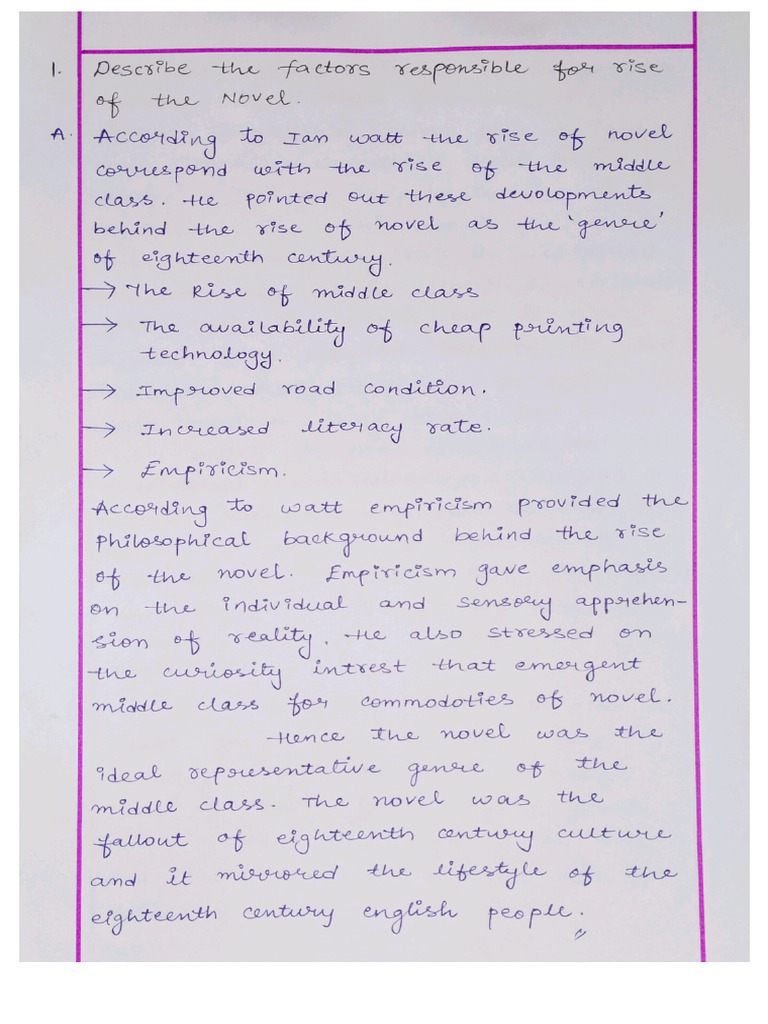 1. Describe the factors responsible for rise
of the Novel.
A. According to Ian watt the rise of novel
correspond with the rise of the middle
class. He pointed out these devolopments
behind the rise of novel as the 'genre'
of eighteenth century.
→ The Rise of middle class
→ The availability of cheap printing
technology.
→ Improved road condition.
→ Increased literacy rate.
→ Empiricism.
According to watt empiricism provided the
philosophical background behind the rise
of the novel. Empiricism gave emphasis
on the individual and sensory apprehen-
sion of reality. He also stressed on
the curiosity intrest that emergent
middle class for commodoties of novel.
Hence the novel was the
ideal representative genre of the
middle class. The novel was the
fallout of eighteenth century culture
and it mirrored the lifestyle of the
eighteenth century english people.